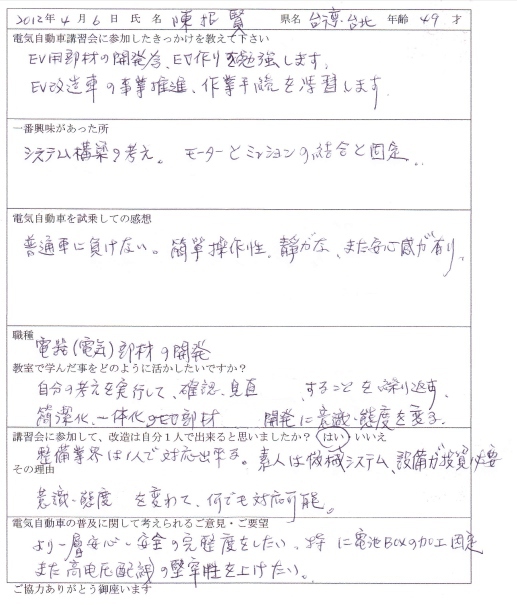 2012年 4月 6日 氏名 陳振賢 県名 台湾.台北 年齢 49 才
電気自動車講習会に参加したきっかけを教えて下さい
EV用部材の開発為、EV作りを勉強します。
EV改造車の事業推進、作業手続を学習します.
一番興味があった所
システム構築の考え。 モーターとミッションの結合と固定。
電気自動車を試乗しての感想
普通車に負けない。簡單操作性、静かな、また安心感が有り。
職種
電器(電気)部材の開発
教室で学んだ事をどのように活かしたいですか?
自分の考えを実行して、確認、見直 することを繰り返す.
簡潔化、一体化のEV部材 開発に意識・態度を変る.
講習会に参加して、改造は自分1人で出来ると思いましたか? はい いいえ
整備業界は1人で対応出来る。素人は機械システム、設備が投資必要
その理由
意識・態度 を変わて、何でも対応可能。
電気自動車の普及に関して考えられるご意見・ご要望
より一層安心・安全の完整度をしたい、特 に電池BOXの加工固定
また高電圧配線の堅牢性を上げたい。
ご協力ありがとう御座います